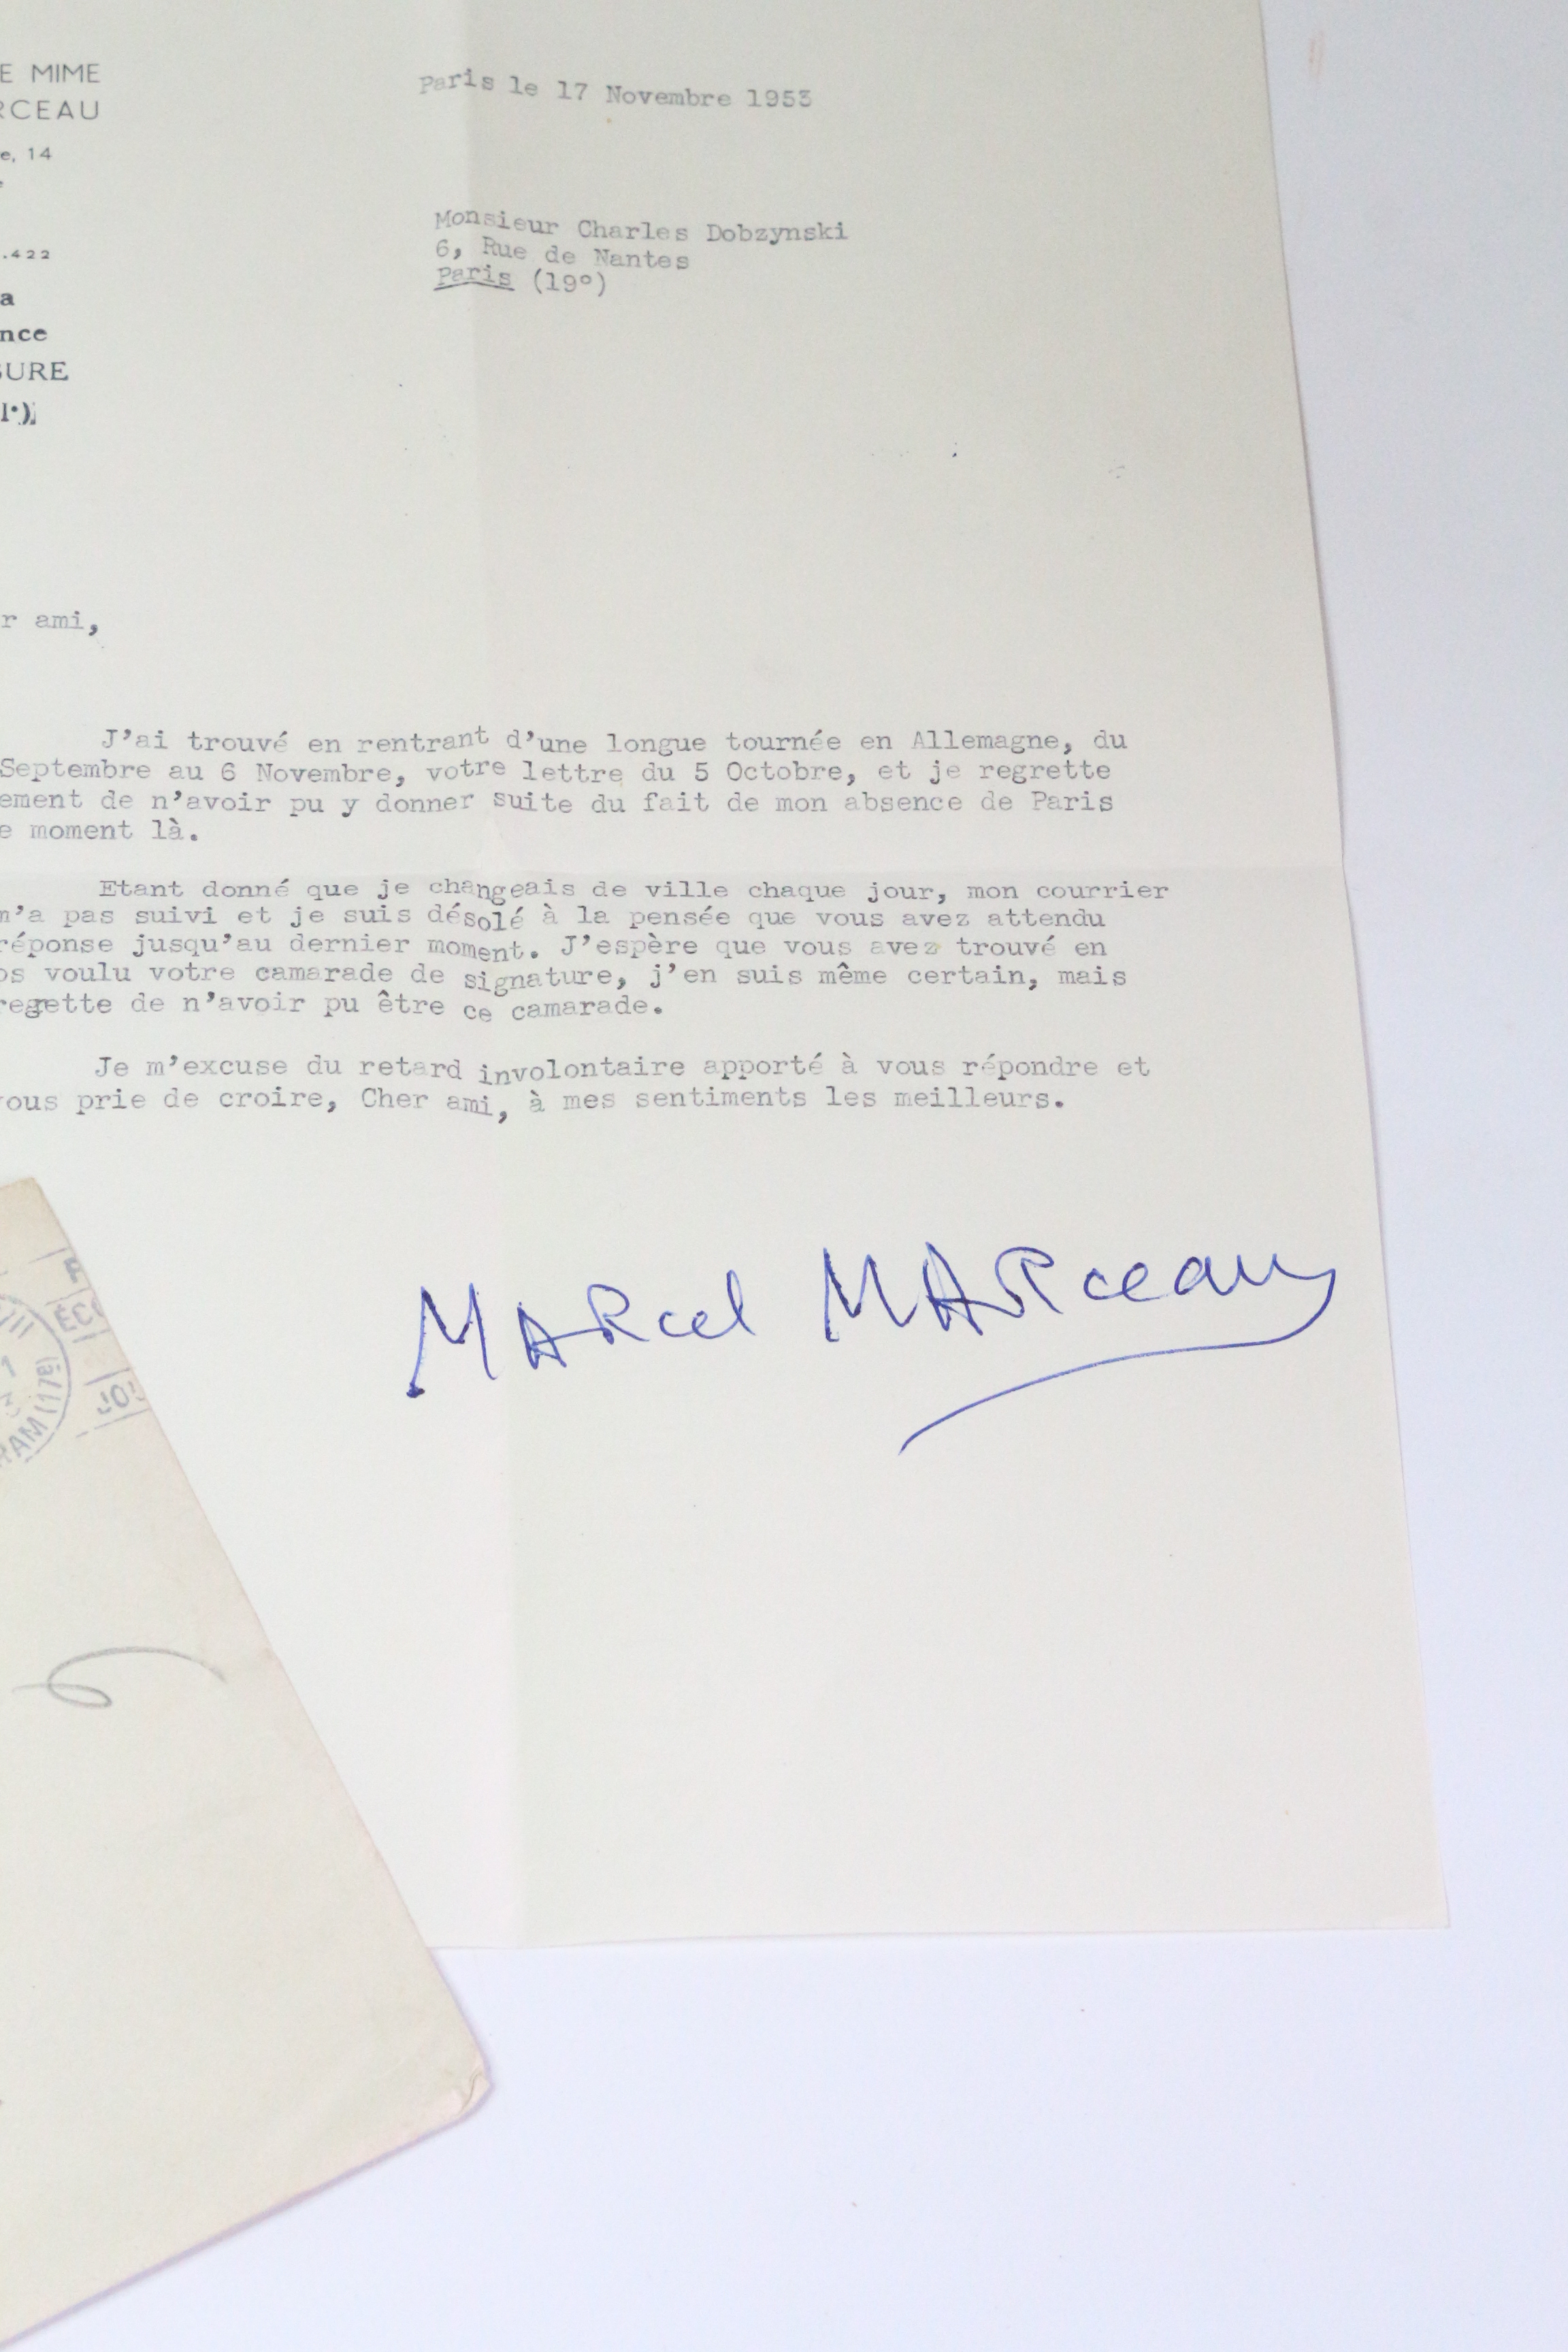 E MIME
RCEAU
e, 14
.422
a
nce
SURE
Paris le 17 Novembre 1953
Monsieur Charles Dobzynski
6, Rue de Nantes
Paris (19°)
r ami,
J'ai trouvé en rentrant d'une longue tournée en Allemagne, du
Septembre au 6 Novembre, votre lettre du 5 Octobre, et je regrette
ement de n'avoir pu y donner suite du fait de mon absence de Paris
e moment là.
Etant donné que je changeais de ville chaque jour, mon courrier
n'a pas suivi et je suis désolé à la pensée que vous avez attendu
réponse jusqu'au dernier moment. J'espère que vous avez trouvé en
ps voulu votre camarade de signature, j'en suis même certain, mais
regrette de n'avoir pu être ce camarade.
Je m'excuse du retard involontaire apporté à vous répondre et
vous prie de croire, Cher ami, à mes sentiments les meilleurs.
MARcel MARceau
ÉCO
JOU
RAM (17e)